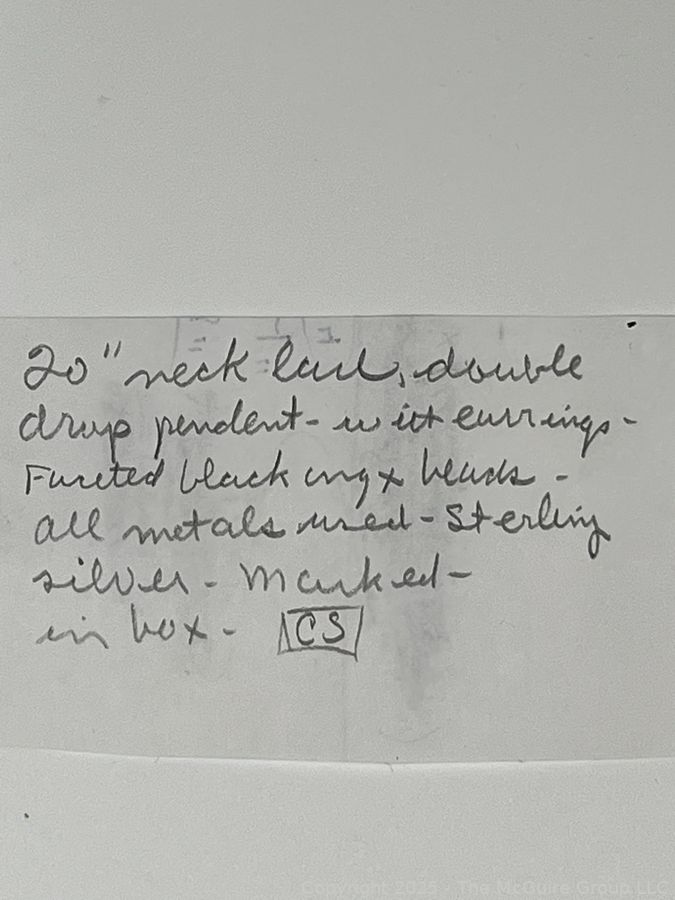 20" necklace, double
drop pendent - with earrings -
Faceted black onyx beads -
all metals used - Sterling
silver - Marked -
in box - CS
Copyright 2025 - The McGuire Group LLC